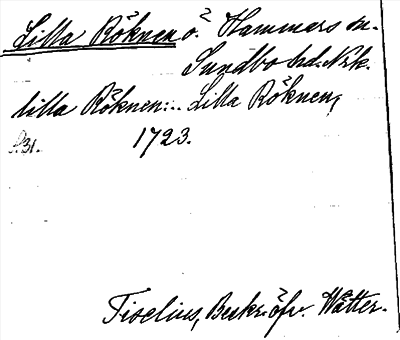 Lilla Röknen ö. Hammars sn.
Sundbo hd. Nrk.
lilla Röknen:.. Lilla Röknen,
S.31. 1723.
Tiselius, Beskr. öfv. Wätter.